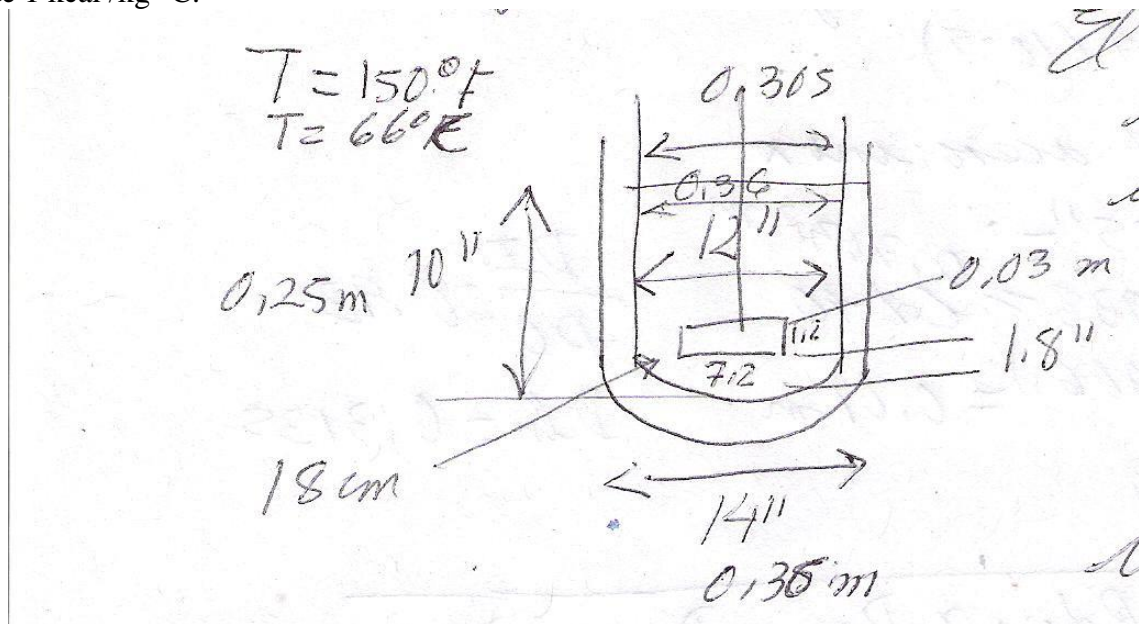 T = 150°F
T = 66°C
0,305
0,36
12"
10"
0,25m
0,03 m
1,2
1.8"
7,2
18 cm
14"
0,36 m